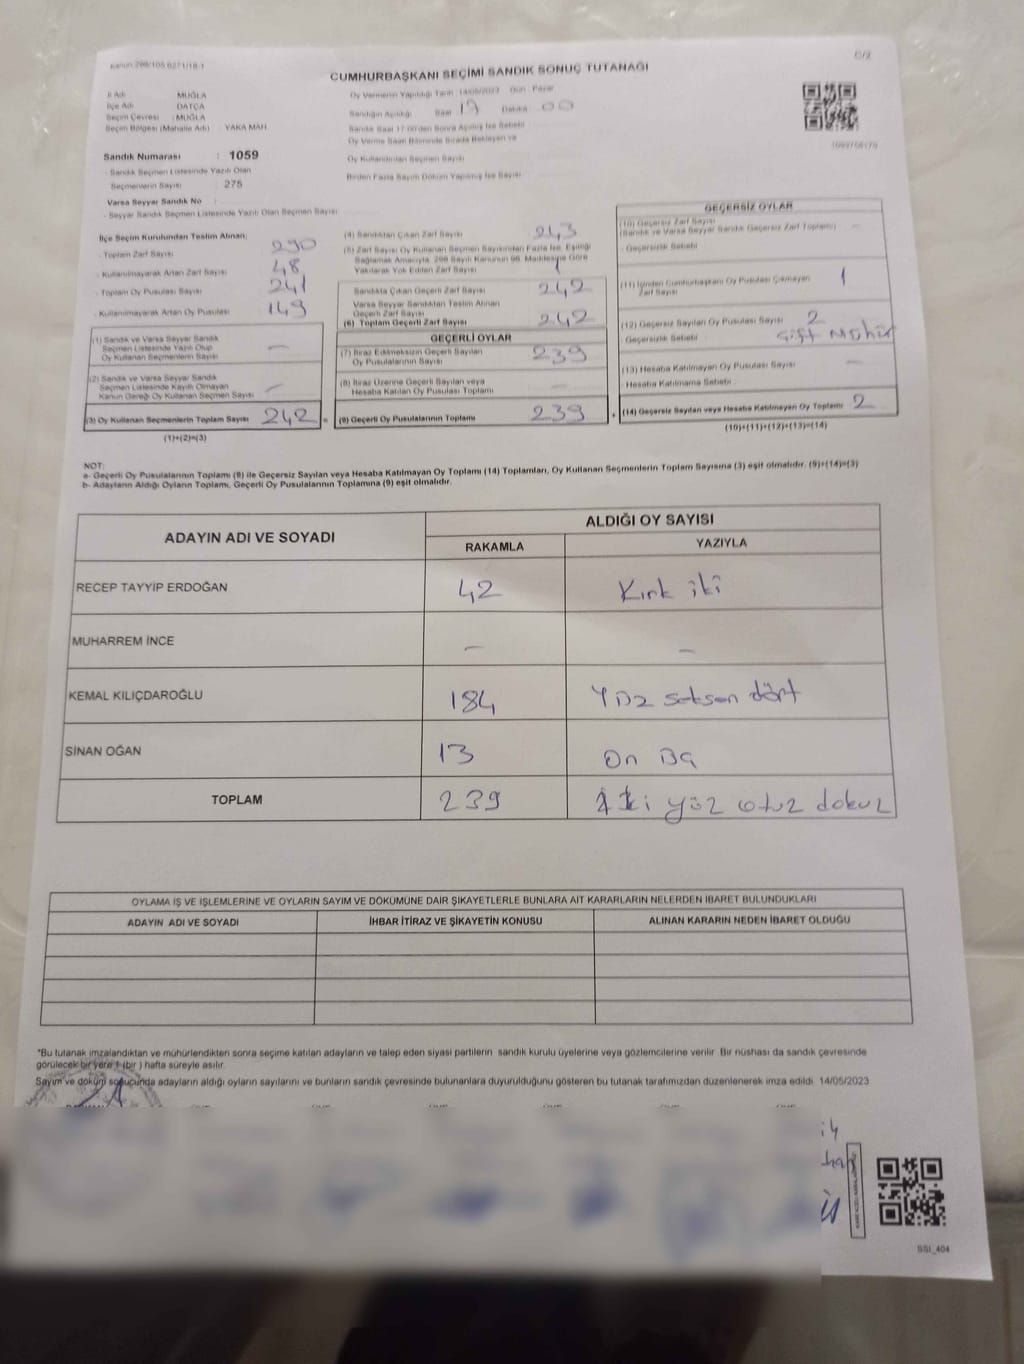 Kanun 298/105 6271/18-1
C/2
CUMHURBAŞKANI SEÇİMİ SANDIK SONUÇ TUTANAĞI
İl Adı : MUĞLA
İlçe Adı : DATÇA
Seçim Çevresi : MUĞLA
Seçim Bölgesi (Mahalle Adı) : YAKA MAH
Sandık Numarası : 1059
- Sandık Seçmen Listesinde Yazılı Olan
Seçmenlerin Sayısı : 275
Varsa Seyyar Sandık No :
- Seyyar Sandık Seçmen Listesinde Yazılı Olan Seçmen Sayısı
Oy Vermenin Yapıldığı Tarih 14/05/2023 Gün Pazar
Sandığın Açıldığı Saat Dakika 00
Sandık Saat 17:00'den Sonra Açılmış İse Sebebi
Oy Verme Saati Bitiminde Sırada Bekleyen ve
Oy Kullandırılan Seçmen Sayısı
Birden Fazla Sayım Döküm Yapılmış İse Sayısı
İlçe Seçim Kurulundan Teslim Alınan;
- Toplam Zarf Sayısı 290
- Kullanılmayarak Artan Zarf Sayısı 48
- Toplam Oy Pusulası Sayısı 241
- Kullanılmayarak Artan Oy Pusulası 149
(1) Sandık ve Varsa Seyyar Sandık
Seçmen Listesinde Yazılı Olup
Oy Kullanan Seçmenlerin Sayısı —
(2) Sandık ve Varsa Seyyar Sandık
Seçmen Listesinde Kayıtlı Olmayan
Kanun Gereği Oy Kullanan Seçmen Sayısı —
(3) Oy Kullanan Seçmenlerin Toplam Sayısı 242 =
(1)+(2)=(3)
(4) Sandıktan Çıkan Zarf Sayısı 243
(5) Zarf Sayısı Oy Kullanan Seçmen Sayısından Fazla İse, Eşitliği
Sağlamak Amacıyla, 298 Sayılı Kanunun 98. Maddesine Göre
Yakılarak Yok Edilen Zarf Sayısı 1
Sandıkta Çıkan Geçerli Zarf Sayısı 242
Varsa Seyyar Sandıktan Teslim Alınan
Geçerli Zarf Sayısı
(6) Toplam Geçerli Zarf Sayısı 242
GEÇERLİ OYLAR
(7) İtiraz Edilmeksizin Geçerli Sayılan
Oy Pusulalarının Sayısı 239
(8) İtiraz Üzerine Geçerli Sayılan veya
Hesaba Katılan Oy Pusulası Toplamı —
(9) Geçerli Oy Pusulalarının Toplamı 239 +
GEÇERSİZ OYLAR
(10) Geçersiz Zarf Sayısı
(Sandık ve Varsa Seyyar Sandık Geçersiz Zarf Toplamı) —
- Geçersizlik Sebebi
(11) İçinden Cumhurbaşkanı Oy Pusulası Çıkmayan
Zarf Sayısı 1
(12) Geçersiz Sayılan Oy Pusulası Sayısı 2
- Geçersizlik Sebebi Çift Mühür
(13) Hesaba Katılmayan Oy Pusulası Sayısı —
- Hesaba Katılmama Sebebi
(14) Geçersiz Sayılan veya Hesaba Katılmayan Oy Toplamı 2
(10)+(11)+(12)+(13)=(14)
NOT:
a- Geçerli Oy Pusulalarının Toplamı (9) ile Geçersiz Sayılan veya Hesaba Katılmayan Oy Toplamı (14) Toplamları, Oy Kullanan Seçmenlerin Toplam Sayısına (3) eşit olmalıdır. (9)+(14)=(3)
b- Adayların Aldığı Oyların Toplamı, Geçerli Oy Pusulalarının Toplamına (9) eşit olmalıdır.
ADAYIN ADI VE SOYADI
ALDIĞI OY SAYISI
RAKAMLA YAZIYLA
RECEP TAYYİP ERDOĞAN 42 Kırk iki
MUHARREM İNCE — —
KEMAL KILIÇDAROĞLU 184 Yüz seksen dört
SİNAN OĞAN 13 On üç
TOPLAM 239 İki yüz otuz dokuz
OYLAMA İŞ VE İŞLEMLERİNE VE OYLARIN SAYIM VE DÖKÜMÜNE DAİR ŞİKAYETLERLE BUNLARA AİT KARARLARIN NELERDEN İBARET BULUNDUKLARI
ADAYIN ADI VE SOYADI İHBAR İTİRAZ VE ŞİKAYETİN KONUSU ALINAN KARARIN NEDEN İBARET OLDUĞU
*Bu tutanak imzalandıktan ve mühürlendikten sonra seçime katılan adayların ve talep eden siyasi partilerin sandık kurulu üyelerine veya gözlemcilerine verilir. Bir nüshası da sandık çevresinde
görülecek bir yere 1 (bir) hafta süreyle asılır.
Sayım ve döküm sonucunda adayların aldığı oyların sayılarını ve bunların sandık çevresinde bulunanlara duyurulduğunu gösteren bu tutanak tarafımızdan düzenlenerek imza edildi. 14/05/2023
SSI_404